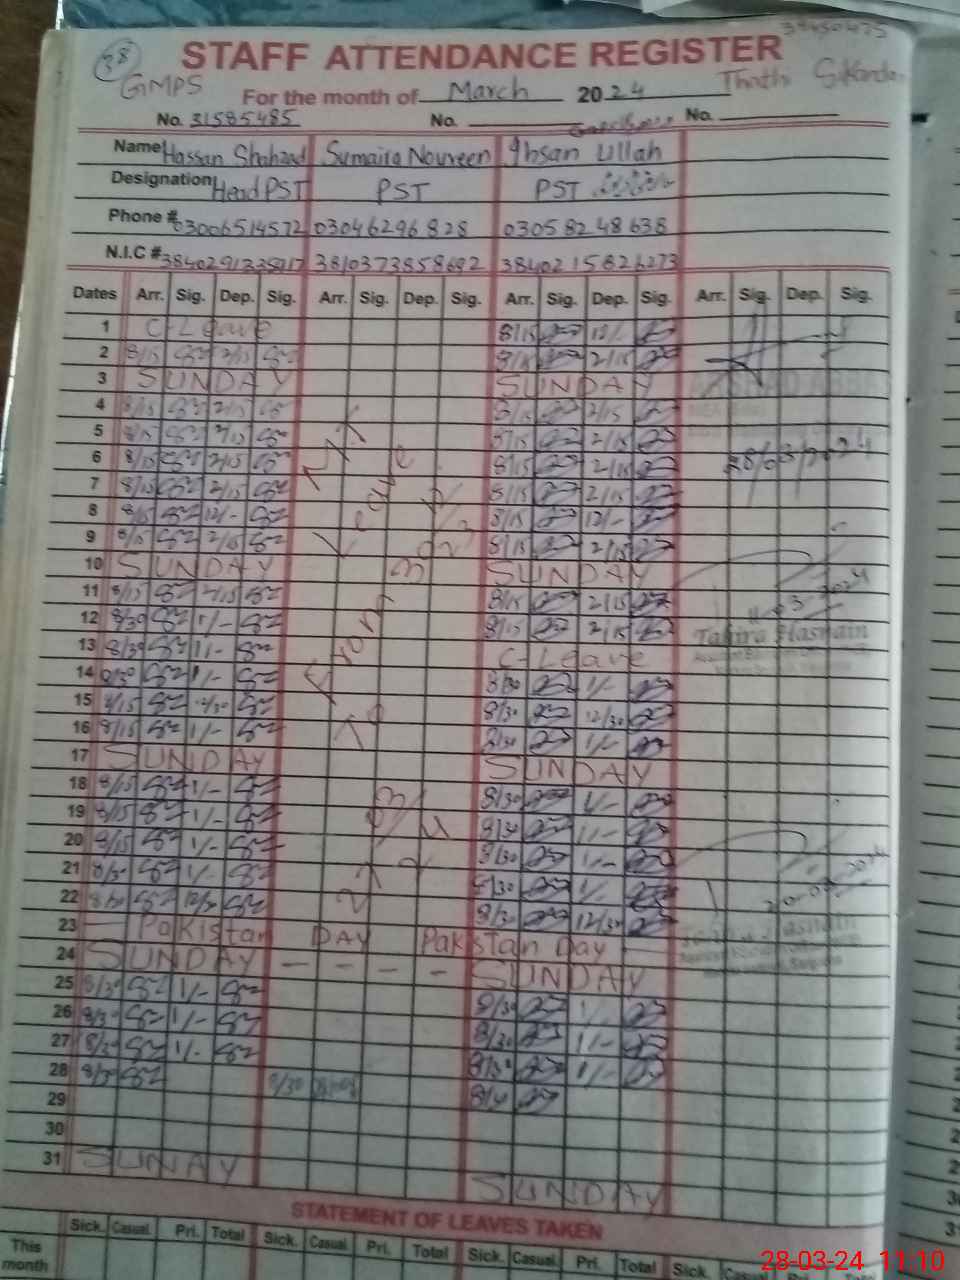 38
STAFF ATTENDANCE REGISTER
GMPS
For the month of March 2024
No. 31585485 No. No.
Name Hassan Shahzad Sumaira Noureen Ihsan Ullah
Designation Head PST PST PST
Phone # 03006514572 03046296828 03058248638
N.I.C # 3810373858692 3840215826273
Dates Arr. Sig. Dep. Sig. Arr. Sig. Dep. Sig. Arr. Sig. Dep. Sig. Arr. Sig. Dep. Sig.
1 C-Leave 8/15 12/-
2 8/15 2/15 8/15 2/15
3 SUNDAY SUNDAY
4 8/15 2/15 8/15 2/15
5 8/15 2/15 8/15 2/15
6 8/15 2/15 8/15 2/15
28/03/2024
7 8/15 2/15 8/15 2/15
8 8/15 12/- 8/15 12/-
9 8/15 2/15 8/15 2/15
10 SUNDAY SUNDAY
11 8/15 2/15 8/15 2/15
11-03-2024
12 8/30 1/- 8/15 2/15
Tahira Hasnain
13 8/30 1/- C-Leave
14 8/30 1/- 8/30 1/-
15 8/15 12/30 8/30 12/30
16 8/15 1/- 8/30 1/-
17 SUNDAY SUNDAY
18 8/15 1/- 8/30 1/-
19 8/15 1/- 8/30 1/-
20 8/15 1/- 8/30 1/-
21 8/30 1/- 8/30 1/-
22 8/30 12/30 8/30 12/30
Leave
From
To
23 Pakistan DAY Pakistan Day
24 SUNDAY - - - - SUNDAY
25 8/30 1/- 8/30 1/-
26 8/30 1/- 8/30 1/-
27 8/30 1/- 8/30 1/-
28 8/30 8/30
29
30
31 SUNAY SUNDAY
STATEMENT OF LEAVES TAKEN
Sick. Casual. Pri. Total Sick. Casual. Pri. Total Sick. Casual. Pri. Total Sick. Casual. Pri. Total
This month
28-03-24 11:10